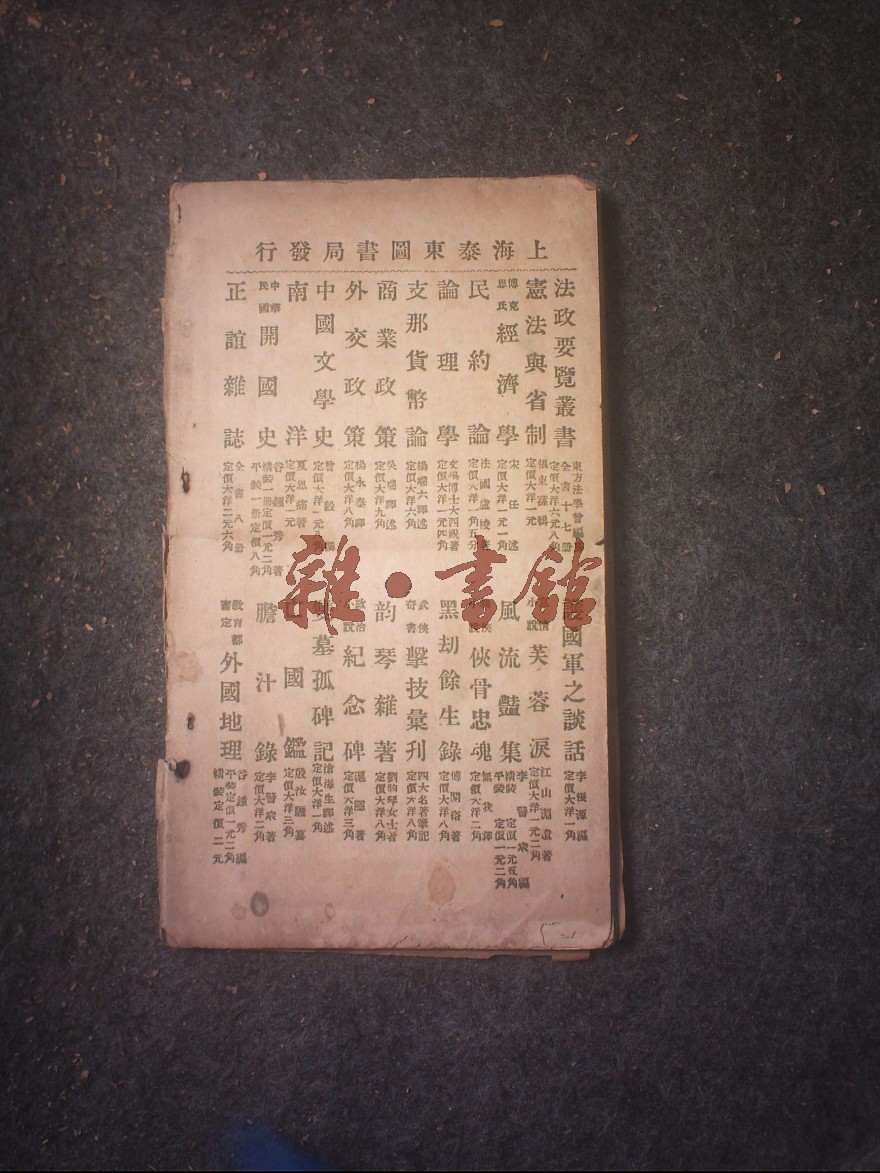 上海泰東圖書局發行
法政要覽叢書
東方法學會編
全書十七冊
定價大洋六元八角
憲法與省制
張東蓀
定價大洋一元
傅克思氏經濟學
宋任述
定價大洋一元一角
民約論
法國盧梭著
定價大洋一角五分
論理學
文學博士大西祝著
定價大洋一元四角
支那貨幣論
楊端六譯述
定價大洋六角
商業政策
吳瑞譯述
定價大洋九角
外交政策
楊永泰譯
定價大洋八角
中國文學史
曾毅編
定價大洋一元
南洋
夏思痛著
定價大洋一元
中華民國開國史
谷鍾秀著
精裝一冊定價一元二角
平裝一冊定價八角
正誼雜誌
全書八冊
定價大洋二元六角
護國軍之談話
李根源編
定價大洋一角
小說芙蓉淚
江山淵遺著
定價大洋一元二角
風流豔集
李警眾編
精裝定價一元五角
平裝定價一元二角
俠骨忠魂
無我譯
定價大洋二角
黑劫餘生錄
傅闊俗著
定價大洋八角
武俠奇書擊技彙刊
四大名著筆記
定價大洋八角
韵琴雜著
劉韵琴女士著
定價大洋八角
政治小說紀念碑
泯隱著
定價大洋三角
雙墓孤碑記
滄海生譯述
定價大洋一角
國鑑
殷汝驪纂
定價大洋三角
膽汁錄
李警眾著
定價大洋二角
教育部審定外國地理
谷鍾秀編
平裝定價一元二角
精裝定價二元
雜·書館